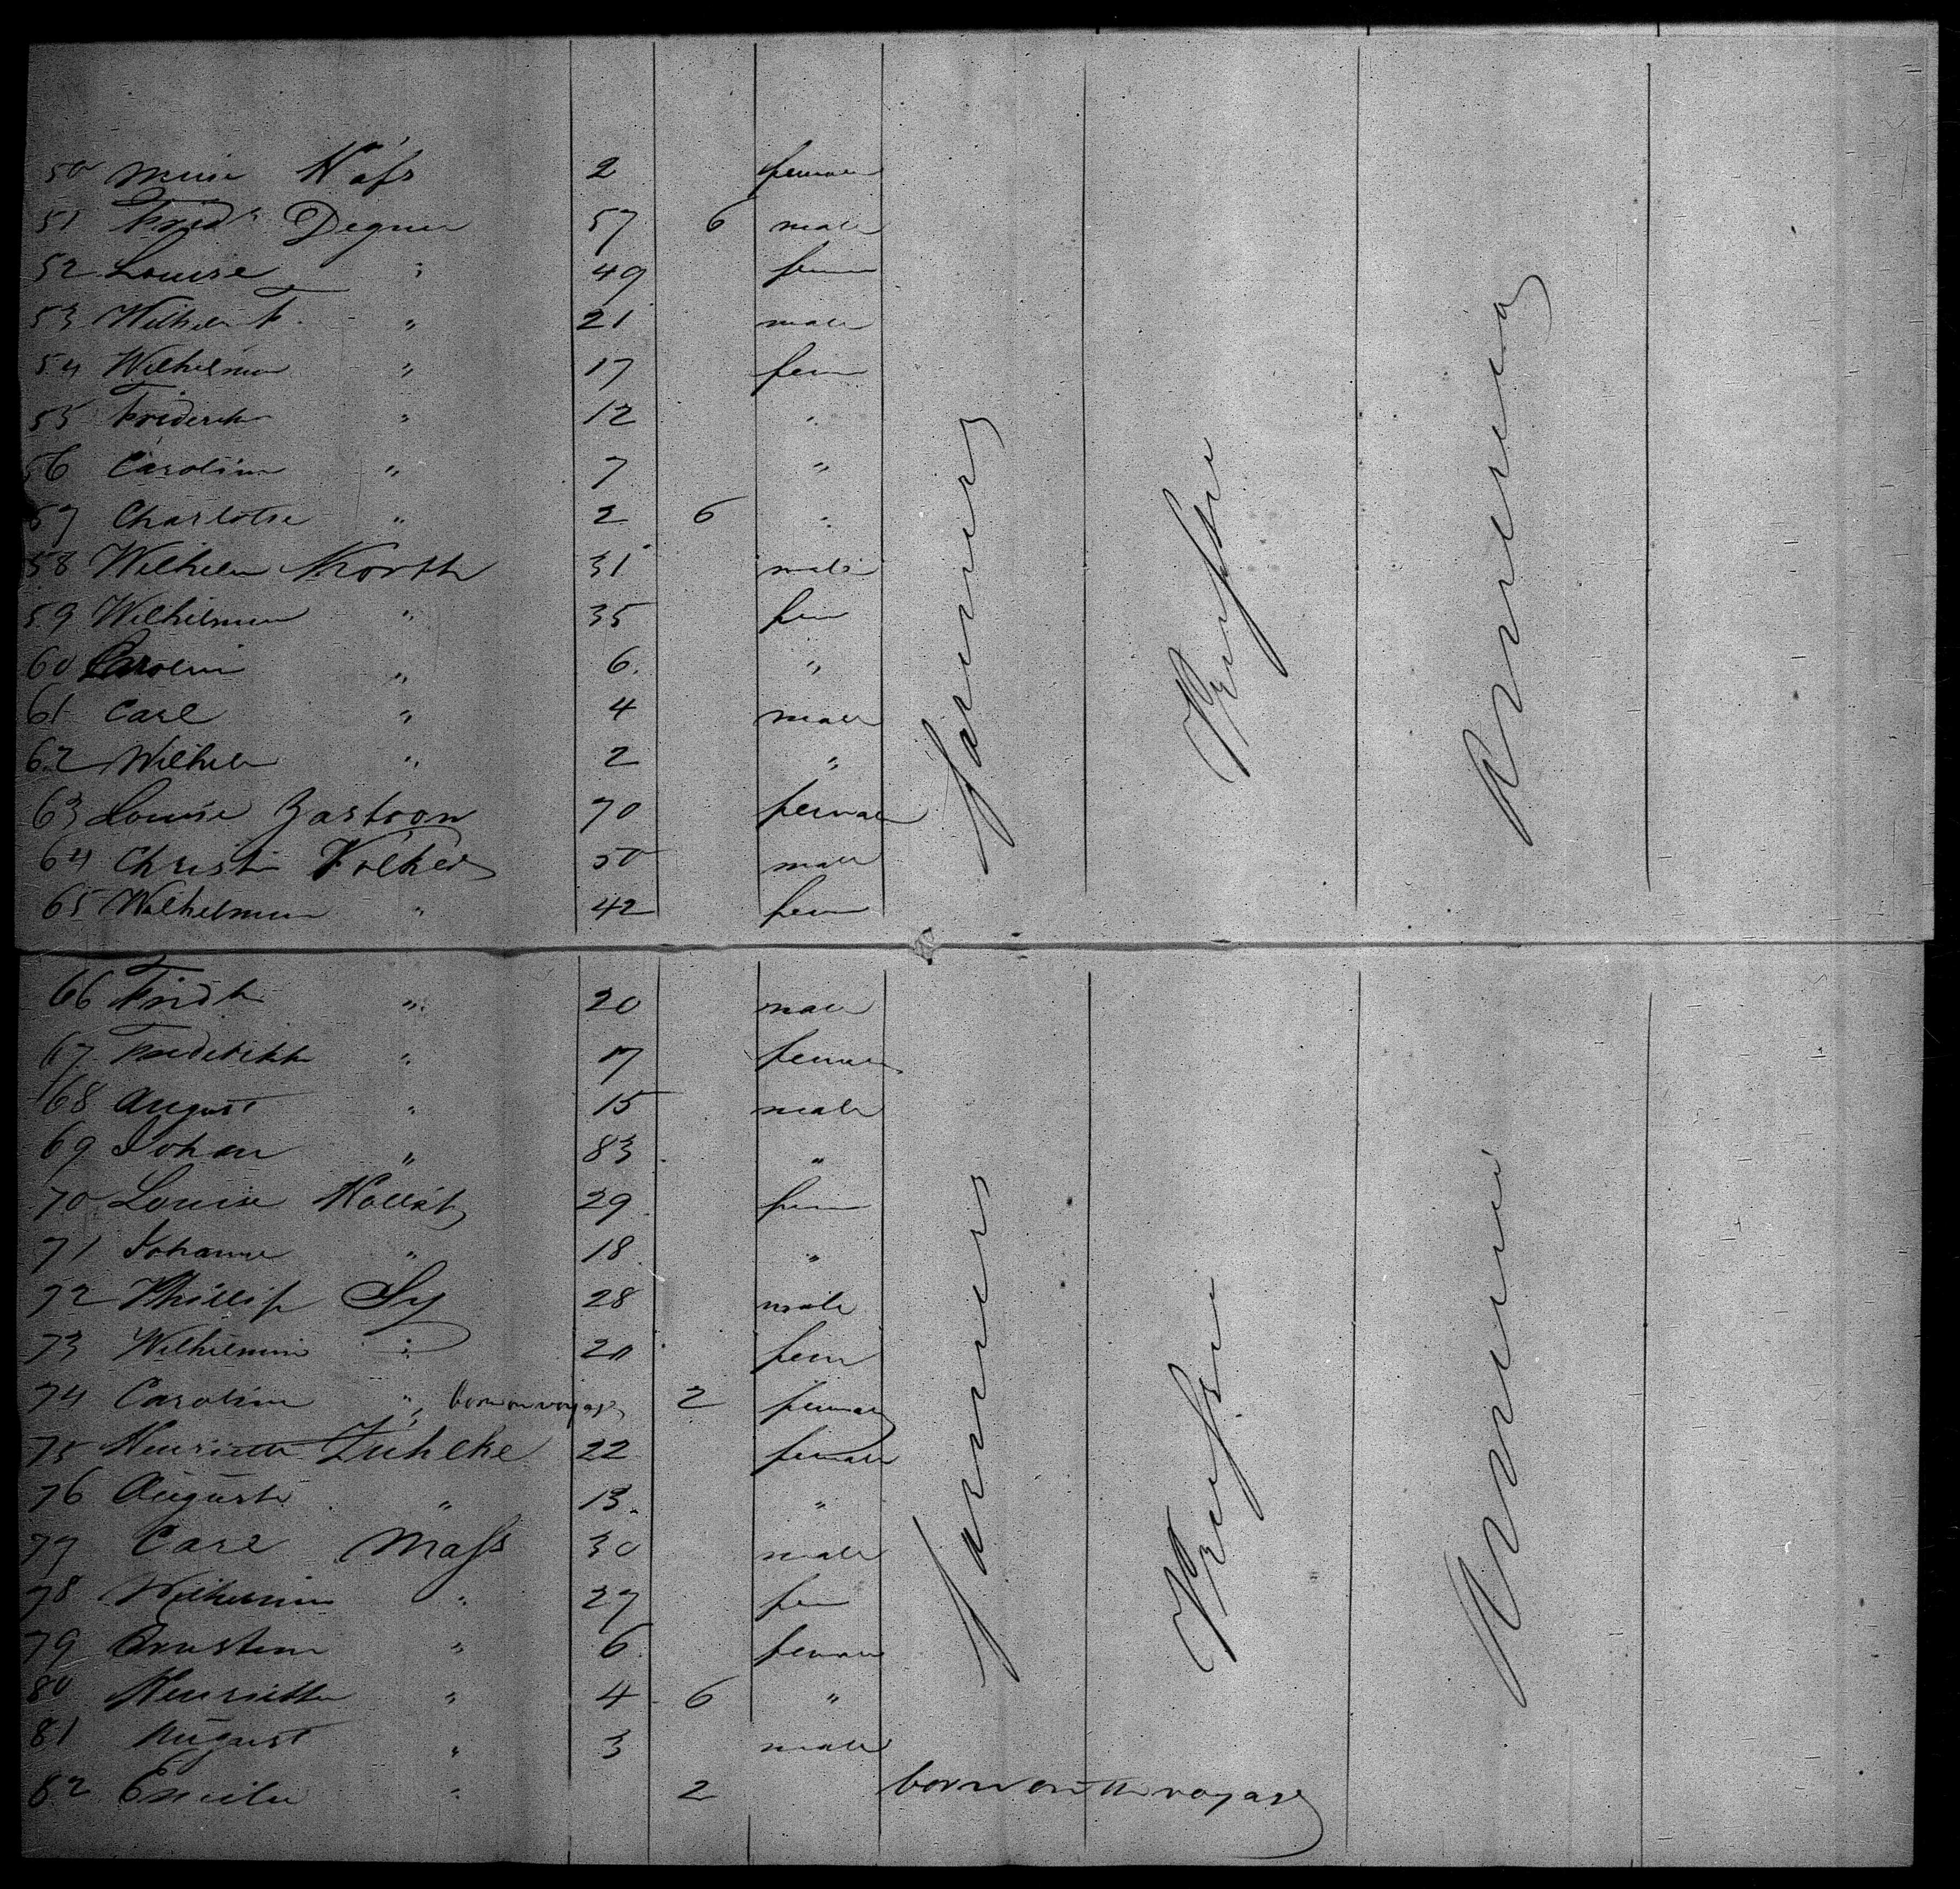 50 Mine Hass 2 female
51 Fried. Degner 57 6 male
52 Louise " 49 fem
53 Wilhelm F. " 21 male
54 Wilhelmin " 17 fem
55 Friderik " 12 "
56 Carolin " 7 "
57 Charlotte " 2 6 "
58 Wilhelm Korth 31 male
59 Wilhelmin " 35 fem
60 Carolin " 6 "
61 Carl " 4 male
62 Wilhelm " 2 "
63 Louise Zastoon 70 female
64 Christ Volker 50 male
65 Wilhelmin " 42 fem
farmers Preussen America
66 Fridk " 20 male
67 Frederikke " 17 female
68 August " 15 male
69 Johan " 83 "
70 Louise 29 fem
71 Johanne " 18 "
72 Phillip Sy 28 male
73 Wilhelmin " 20 fem
74 Carolin " born on voyage 2 female
75 Henriette Zuhlke 22 female
76 Auguste " 13 "
77 Carl Mass 30 male
78 Wilhelmin " 27 fem
79 Ernstin " 6 female
80 Henriette " 4 6 "
81 August " 3 male
82 Emilie " 2 born on the voyage
farmers Preussen America